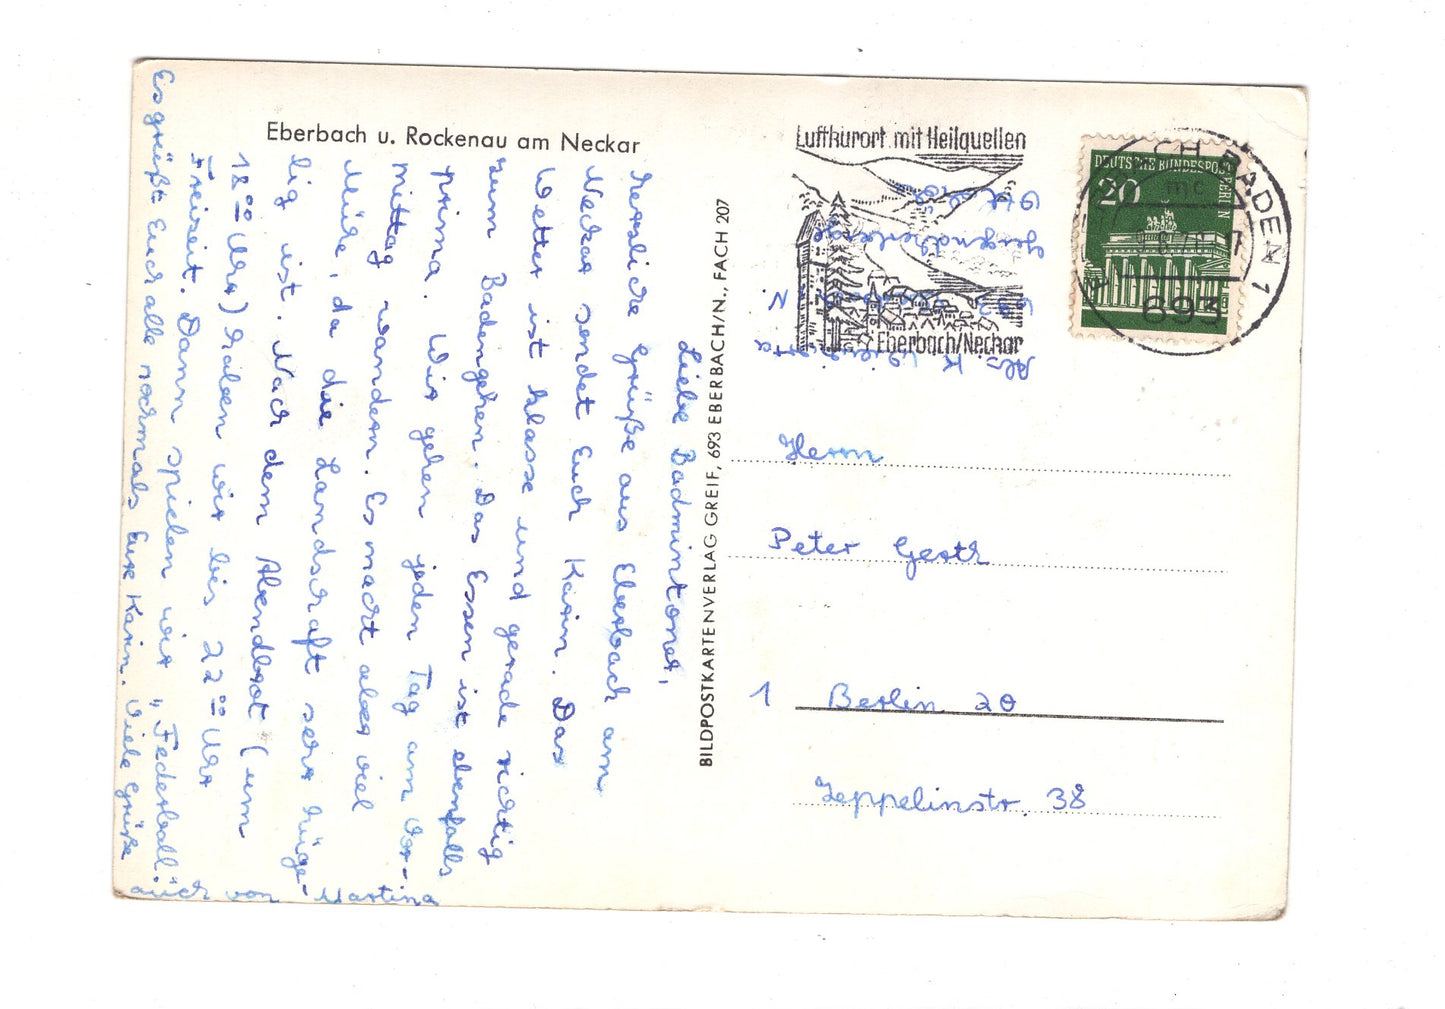 Eberbach u. Rockenau am Neckar
Liebe Badmintoner,
herzliche Grüße aus Eberbach am
Neckar sendet Euch Karin. Das
Wetter ist klasse und gerade richtig
zum Badengehen. Das Essen ist ebenfalls
prima. Wir gehen jeden Tag am Vor-
mittag wandern. Es macht aber viel
Mühe, da die Landschaft sehr hüge-
lig ist. Nach dem Abendbrot (um
18⁰⁰ Uhr) haben wir bis 22⁰⁰ Uhr
Freizeit. Dann spielen wir „Federball".
Es grüßt Euch alle nochmals Eure Karin. Viele Grüße
auch von Martina
BILDPOSTKARTENVERLAG GREIF, 693 EBERBACH/N., FACH 207
Luftkurort mit Heilquellen
Eberbach/Neckar
DEUTSCHE BUNDESPOST BERLIN
20
CH BADEN 1
mc
693
Abs: K
693
Jugendherberge
Herrn
Peter Gerth
1 Berlin 20
Zeppelinstr. 38